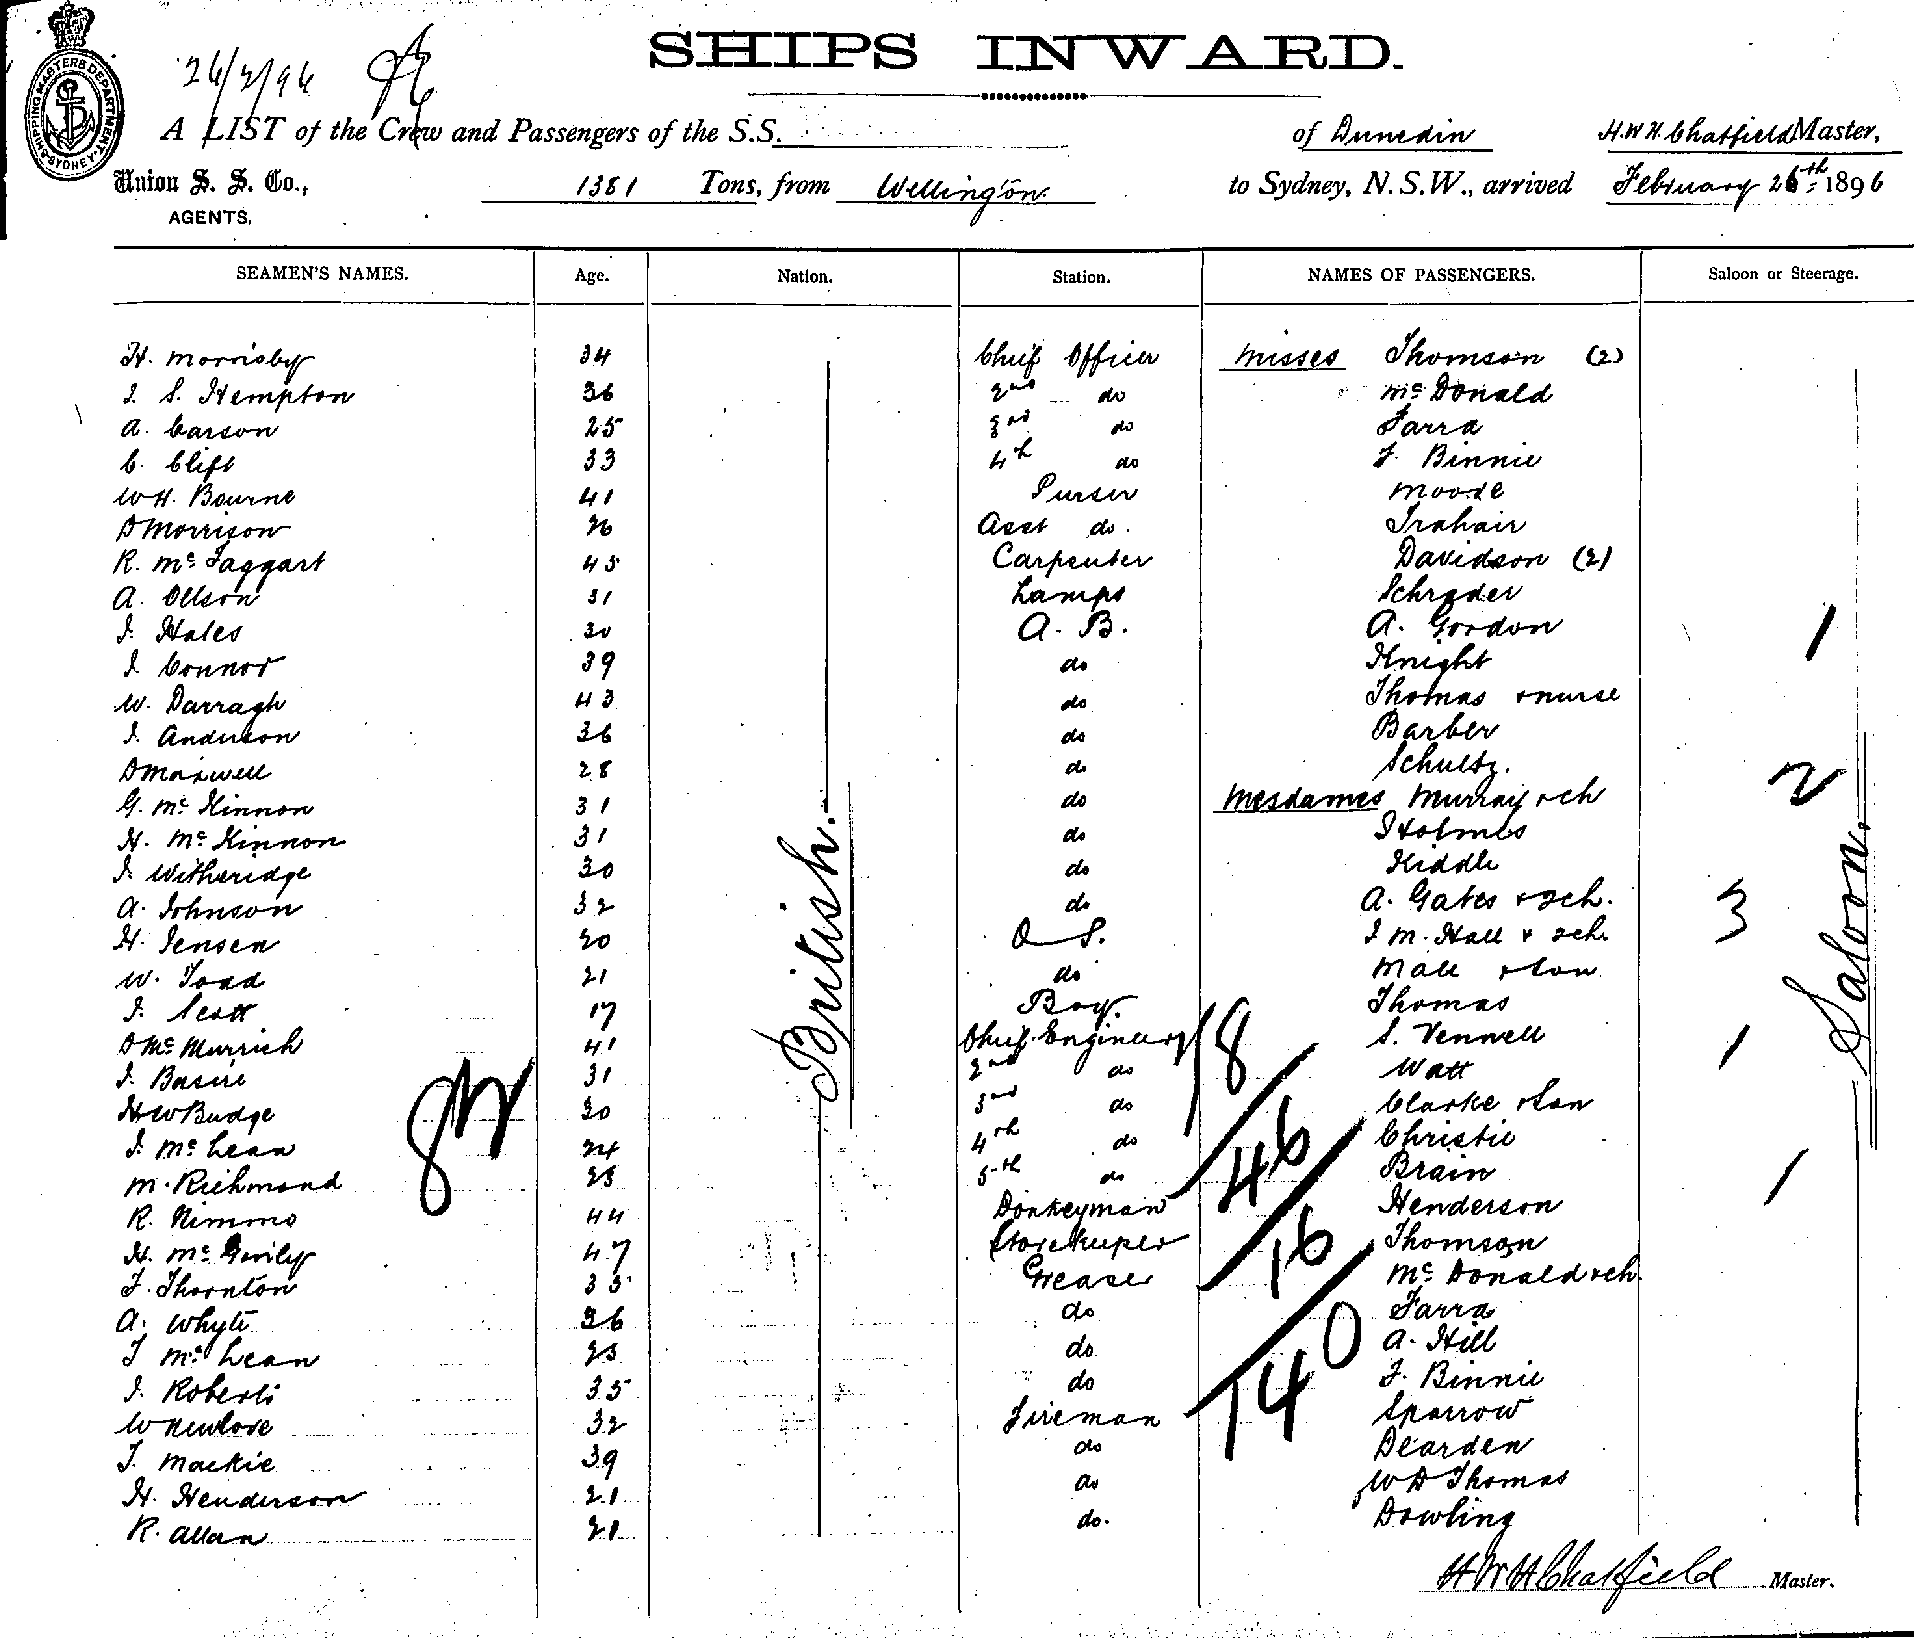 SHIPPING MASTERS DEPARTMENT SYDNEY
26/2/96
SHIPS INWARD.
A LIST of the Crew and Passengers of the S.S. of Dunedin H.W.H. Chatfield Master,
Union S. S. Co., 1381 Tons, from Wellington to Sydney, N.S.W., arrived February 26th 1896
AGENTS.
SEAMEN'S NAMES. Age. Nation. Station. NAMES OF PASSENGERS. Saloon or Steerage.
H. Morrisby 34 Chief Officer Misses Thomson (2)
J. S. Hempton 36 2nd do McDonald
A. Carson 25 3rd do Farra
C. Clift 33 4th do F. Binnie
W H. Bourne 41 Purser Moore
D Morrison 26 Asst do. Trahair
R. McTaggart 45 Carpenter Davidson (2)
A. Ollson 31 Lamps Schroder
J. Hales 30 A. B. A. Gordon 1
J. Connor 39 do Knight
W. Darragh 43 do Thomas & nurse
J. Anderson 36 do Barber
D Maxwell 28 do Schultz. 2
G. McKinnon 31 do Mesdames Murray & ch
H. McKinnon 31 do Holmes
J. Witheridge 30 do Kiddle
A. Johnson 32 do A. Gates & 2 ch. 3
H. Jensen 20 O S. J M. Hall & 2 ch.
W. Todd 21 do Male & son
J. Scott 17 Boy. Thomas
D McMurrich 41 Chief Engineer S. Vennell 1
J. Basire 31 2nd do Watt
H W Budge 30 3rd do Clarke & son
J. McLean 24 4th do Christie
M. Richmond 23 5th do Brain 1
R. Nimmo 44 Donkeyman Henderson
H. Mc 47 Storekeeper Thomson
F. Thornton 33 Greaser McDonald & ch.
A. Whyte 36 do Farra
J McLean 23 do A. Hill
J. Roberts 35 do F. Binnie
W Newlove 32 Fireman Sparrow
J. Mackie 39 do Dearden
H. Henderson 21 do W D Thomas
R. Allan 21 do. Dowling
British.
Saloon.
18
46
16
140
H W H Chatfield Master.